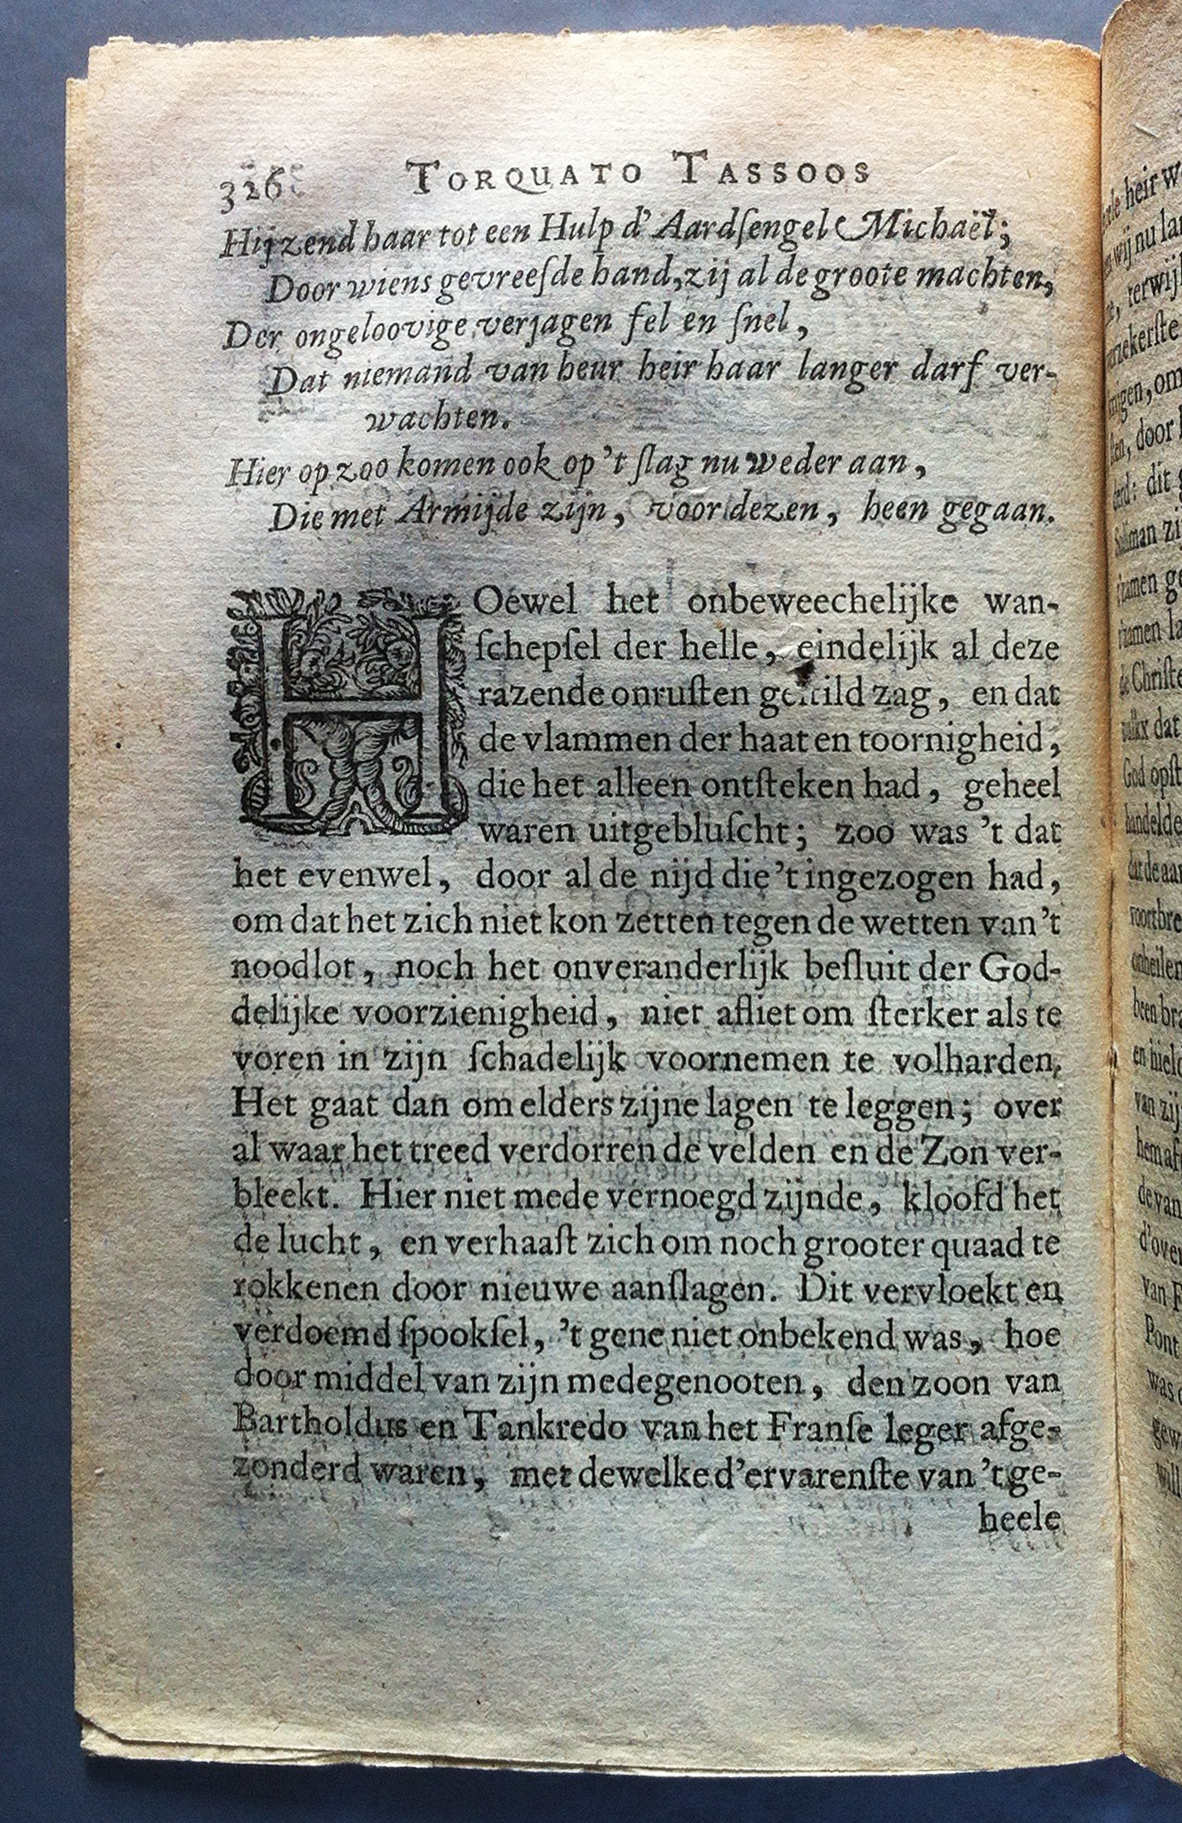 326 TORQUATO TASSOOS
Hijzend haar tot een Hulp d' Aardſengel Michaël;
Door wiens gevreeſde hand, zij al de groote machten,
Der ongeloovige verjagen fel en ſnel,
Dat niemand van heur heir haar langer darf ver-
wachten.
Hier op zoo komen ook op 't ſlag nu weder aan,
Die met Armijde zijn, voor dezen, heen gegaan.
HOewel het onbeweechelijke wan-
ſchepſel der helle, eindelijk al deze
razende onruſten geſtild zag, en dat
de vlammen der haat en toornigheid,
die het alleen ontſteken had, geheel
waren uitgebluſcht; zoo was 't dat
het evenwel, door al de nijd die 't ingezogen had,
om dat het zich niet kon zetten tegen de wetten van 't
noodlot, noch het onveranderlijk beſluit der God-
delijke voorzienigheid, niet afliet om ſterker als te
voren in zijn ſchadelijk voornemen te volharden,
Het gaat dan om elders zijne lagen te leggen; over
al waar het treed verdorren de velden en de Zon ver-
bleekt. Hier niet mede vernoegd zijnde, kloofd het
de lucht, en verhaaſt zich om noch grooter quaad te
rokkenen door nieuwe aanſlagen. Dit vervloekt en
verdoemd ſpookſel, 't gene niet onbekend was, hoe
door middel van zijn medegenooten, den zoon van
Bartholdus en Tankredo van het Franſe leger afge-
zonderd waren, met dewelke d'ervarenſte van 't ge-
heele